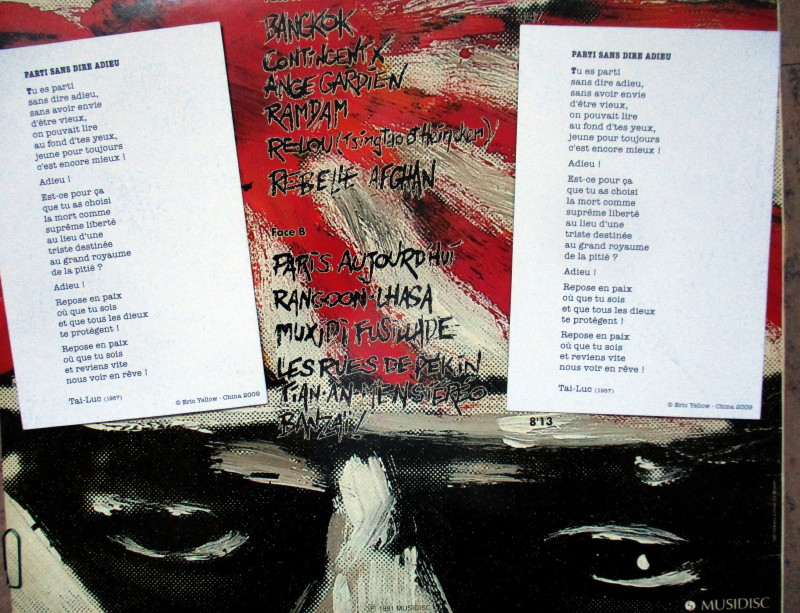 PARTI SANS DIRE ADIEU
Tu es parti
sans dire adieu,
sans avoir envie
d'être vieux,
on pouvait lire
au fond d'tes yeux,
jeune pour toujours
c'est encore mieux !
Adieu !
Est-ce pour ça
que tu as choisi
la mort comme
suprême liberté
au lieu d'une
triste destinée
au grand royaume
de la pitié ?
Adieu !
Repose en paix
où que tu sois
et que tous les dieux
te protègent !
Repose en paix
où que tu sois
et reviens vite
nous voir en rêve !
Tai-Luc (1987)
© Eric Yellow - China 2009
BANGKOK
CONTINGENT X
ANGE GARDIEN
RAMDAM
RELOU (Tsingtao & Heineken)
REBELLE AFGHAN
Face B
PARIS AUJOURD'HUI
RANGOON-LHASA
MUXIDI FUSILLADE
LES RUES DE PEKIN
TIAN-AN-MEN STEREO
BANZAÏ!
8'13
℗ 1991 MUSIDISC
MUSIDISC
PARTI SANS DIRE ADIEU
Tu es parti
sans dire adieu,
sans avoir envie
d'être vieux,
on pouvait lire
au fond d'tes yeux,
jeune pour toujours
c'est encore mieux !
Adieu !
Est-ce pour ça
que tu as choisi
la mort comme
suprême liberté
au lieu d'une
triste destinée
au grand royaume
de la pitié ?
Adieu !
Repose en paix
où que tu sois
et que tous les dieux
te protègent !
Repose en paix
où que tu sois
et reviens vite
nous voir en rêve !
Tai-Luc (1987)
© Eric Yellow - China 2009